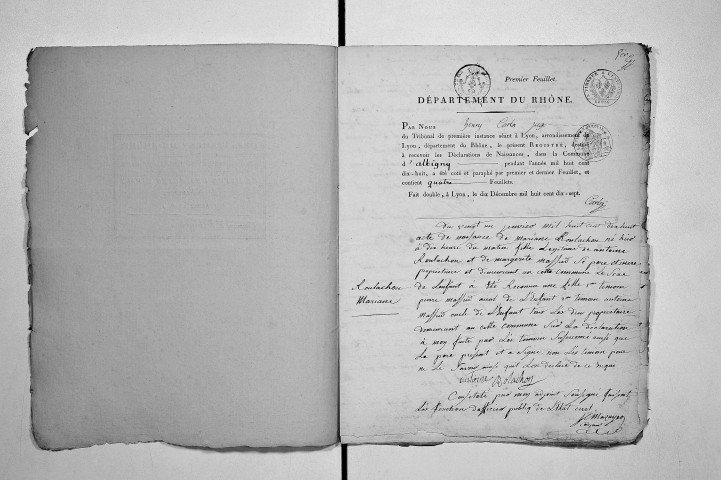 Premier Feuillet.
DÉPARTEMENT DU RHÔNE.
PAR NOUS henry Juge
du Tribunal de première instance séant à Lyon, arrondissement de
Lyon, département du Rhône, le présent REGISTRE, destiné
à recevoir les Déclarations de Naissances, dans la Commune
d'albigny pendant l'année mil huit cent
dix-huit, a été coté et paraphé par premier et dernier Feuillet, et
contient quatre Feuillets.
Fait double, à Lyon, le dix Décembre mil huit cent dix-sept.
Du vingt un janvier mil huit cent dix huit
acte de naissance de Mariane Roulachon né hier
à dix heure du matin fille Legitime de antoine
Roulachon et de margerite massué Le pere et mere
proprietaire et demeurant en cette commune Le Sexe
Roulachon
Mariane
de Lenfant à été Reconnu une fille 1er temoin
pierre massué aieul de L'enfant 2e temoin antoine
massué oncle de L'enfant tous Les deux proprietaire
demeurant en cette commune Sur La declaration
à moy faite par Les temoin ainsi que
Le pere present et a Signé non Les temoin pour
ne Le Savoir ainsi quil Lon declaré de ce
antoine Rolachon
Constaté par moy adjoint Soussigné faisant
Les fonction dofficier publiq de L'état civil